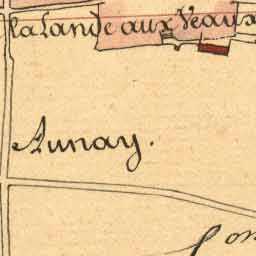 la Lande aux Veaux
Aunay.
Com